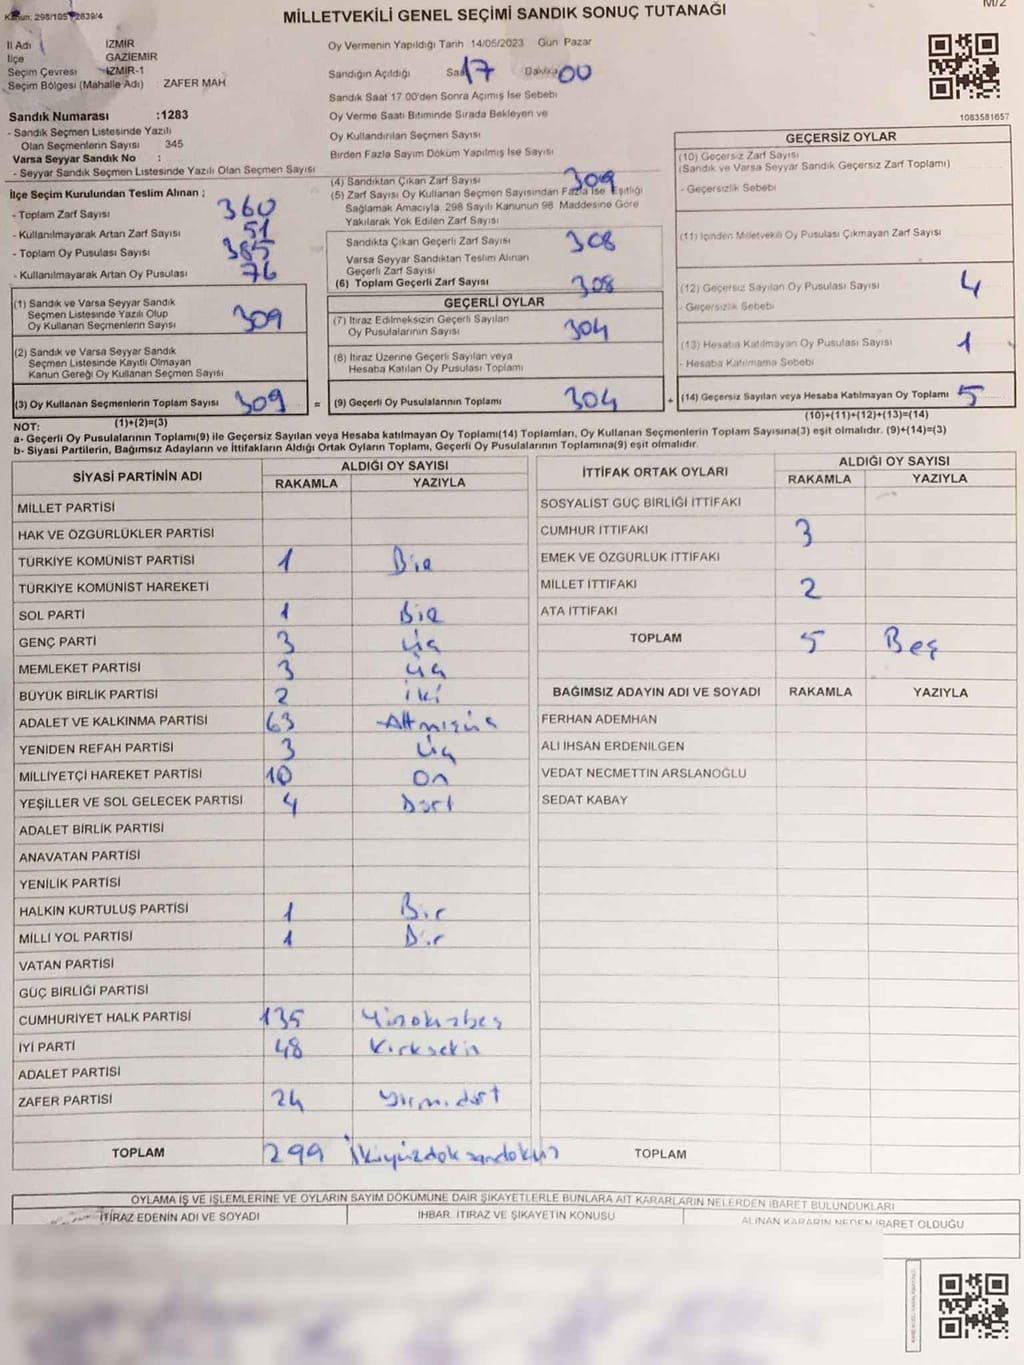 Kanun: 298/105 - 2839/4
MİLLETVEKİLİ GENEL SEÇİMİ SANDIK SONUÇ TUTANAĞI
M/2
İl Adı İZMİR
İlçe GAZİEMİR
Seçim Çevresi İZMİR-1
Seçim Bölgesi (Mahalle Adı) ZAFER MAH
Sandık Numarası :1283
- Sandık Seçmen Listesinde Yazılı
Olan Seçmenlerin Sayısı 345
Varsa Seyyar Sandık No :
- Seyyar Sandık Seçmen Listesinde Yazılı Olan Seçmen Sayısı
İlçe Seçim Kurulundan Teslim Alınan ;
- Toplam Zarf Sayısı 360
- Kullanılmayarak Artan Zarf Sayısı 51
- Toplam Oy Pusulası Sayısı 385
- Kullanılmayarak Artan Oy Pusulası 76
(1) Sandık ve Varsa Seyyar Sandık
Seçmen Listesinde Yazılı Olup
Oy Kullanan Seçmenlerin Sayısı 309
(2) Sandık ve Varsa Seyyar Sandık
Seçmen Listesinde Kayıtlı Olmayan
Kanun Gereği Oy Kullanan Seçmen Sayısı
(3) Oy Kullanan Seçmenlerin Toplam Sayısı 309 =
(1)+(2)=(3)
Oy Vermenin Yapıldığı Tarih 14/05/2023 Gün Pazar
Sandığın Açıldığı Saat 17 Dakika 00
Sandık Saat 17 00'den Sonra Açımış İse Sebebi
Oy Verme Saati Bitiminde Sırada Bekleyen ve
Oy Kullandırılan Seçmen Sayısı
Birden Fazla Sayım Döküm Yapılmış İse Sayısı
(4) Sandıktan Çıkan Zarf Sayısı 309
(5) Zarf Sayısı Oy Kullanan Seçmen Sayısından Fazla İse Eşitliği
Sağlamak Amacıyla, 298 Sayılı Kanunun 98 Maddesine Göre
Yakılarak Yok Edilen Zarf Sayısı
Sandıkta Çıkan Geçerli Zarf Sayısı 308
Varsa Seyyar Sandıktan Teslim Alınan
Geçerli Zarf Sayısı
(6) Toplam Geçerli Zarf Sayısı 308
GEÇERLİ OYLAR
(7) İtiraz Edilmeksizin Geçerli Sayılan
Oy Pusulalarının Sayısı 304
(8) İtiraz Üzerine Geçerli Sayılan veya
Hesaba Katılan Oy Pusulası Toplamı
(9) Geçerli Oy Pusulalarının Toplamı 304 +
1083581657
GEÇERSİZ OYLAR
(10) Geçersiz Zarf Sayısı
(Sandık ve Varsa Seyyar Sandık Geçersiz Zarf Toplamı)
- Geçersizlik Sebebi
(11) İçinden Milletvekili Oy Pusulası Çıkmayan Zarf Sayısı
(12) Geçersiz Sayılan Oy Pusulası Sayısı 4
- Geçersizlik Sebebi
(13) Hesaba Katılmayan Oy Pusulası Sayısı 1
- Hesaba Katılmama Sebebi
(14) Geçersiz Sayılan veya Hesaba Katılmayan Oy Toplamı 5
(10)+(11)+(12)+(13)=(14)
NOT:
a- Geçerli Oy Pusulalarının Toplamı(9) ile Geçersiz Sayılan veya Hesaba katılmayan Oy Toplamı(14) Toplamları, Oy Kullanan Seçmenlerin Toplam Sayısına(3) eşit olmalıdır. (9)+(14)=(3)
b- Siyasi Partilerin, Bağımsız Adayların ve İttifakların Aldığı Ortak Oyların Toplamı, Geçerli Oy Pusulalarının Toplamına(9) eşit olmalıdır.
SİYASİ PARTİNİN ADI ALDIĞI OY SAYISI
RAKAMLA YAZIYLA
MİLLET PARTİSİ
HAK VE ÖZGÜRLÜKLER PARTİSİ
TÜRKİYE KOMÜNİST PARTİSİ 1 Bir
TÜRKİYE KOMÜNİST HAREKETİ
SOL PARTİ 1 Bir
GENÇ PARTİ 3 üç
MEMLEKET PARTİSİ 3 üç
BÜYÜK BİRLİK PARTİSİ 2 iki
ADALET VE KALKINMA PARTİSİ 63 Altmışüç
YENİDEN REFAH PARTİSİ 3 üç
MİLLİYETÇİ HAREKET PARTİSİ 10 on
YEŞİLLER VE SOL GELECEK PARTİSİ 4 Dört
ADALET BİRLİK PARTİSİ
ANAVATAN PARTİSİ
YENİLİK PARTİSİ
HALKIN KURTULUŞ PARTİSİ 1 Bir
MİLLİ YOL PARTİSİ 1 Bir
VATAN PARTİSİ
GÜÇ BİRLİĞİ PARTİSİ
CUMHURİYET HALK PARTİSİ 135 Yüzotuzbeş
İYİ PARTİ 48 Kırksekiz
ADALET PARTİSİ
ZAFER PARTİSİ 24 Yirmidört
TOPLAM 299 İkiyüzdoksandokuz
İTTİFAK ORTAK OYLARI ALDIĞI OY SAYISI
RAKAMLA YAZIYLA
SOSYALİST GÜÇ BİRLİĞİ İTTİFAKI
CUMHUR İTTİFAKI 3
EMEK VE ÖZGÜRLÜK İTTİFAKI
MİLLET İTTİFAKI 2
ATA İTTİFAKI
TOPLAM 5 Beş
BAĞIMSIZ ADAYIN ADI VE SOYADI RAKAMLA YAZIYLA
FERHAN ADEMHAN
ALİ İHSAN ERDENİLGEN
VEDAT NECMETTİN ARSLANOĞLU
SEDAT KABAY
TOPLAM
OYLAMA İŞ VE İŞLEMLERİNE VE OYLARIN SAYIM DÖKÜMÜNE DAİR ŞİKAYETLERLE BUNLARA AİT KARARLARIN NELERDEN İBARET BULUNDUKLARI
İTİRAZ EDENİN ADI VE SOYADI İHBAR. İTİRAZ VE ŞİKAYETİN KONUSU ALINAN KARARIN NEDEN İBARET OLDUĞU